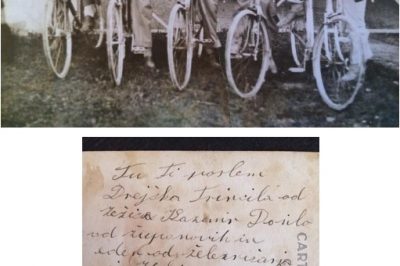 Tu Ti poslem
Drejška Trincila od
Ježiza Kazimir Dosilo
od županovih in
eden od železnišarjo
CART